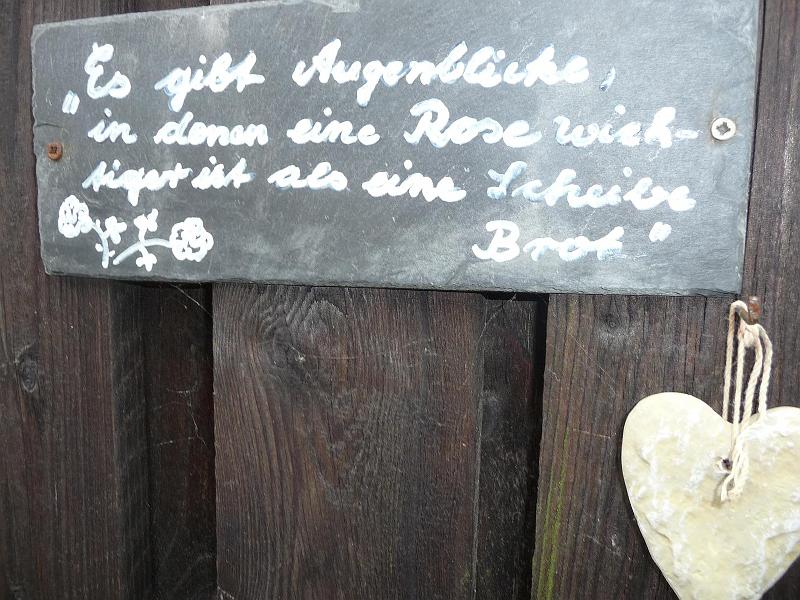 „Es gibt Augenblicke,
in denen eine Rose wich-
tiger ist als eine Scheibe
Brot"